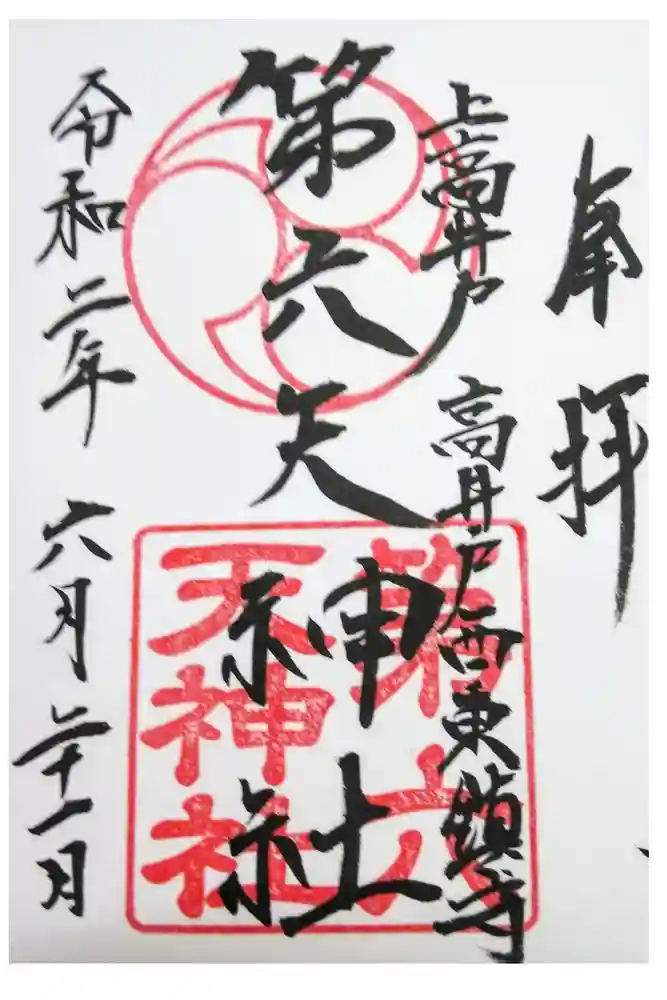 奉拝
上高井戸 高井戸西東鎮守
第六天神社
令和二年 六月二十一日
第六
天神社